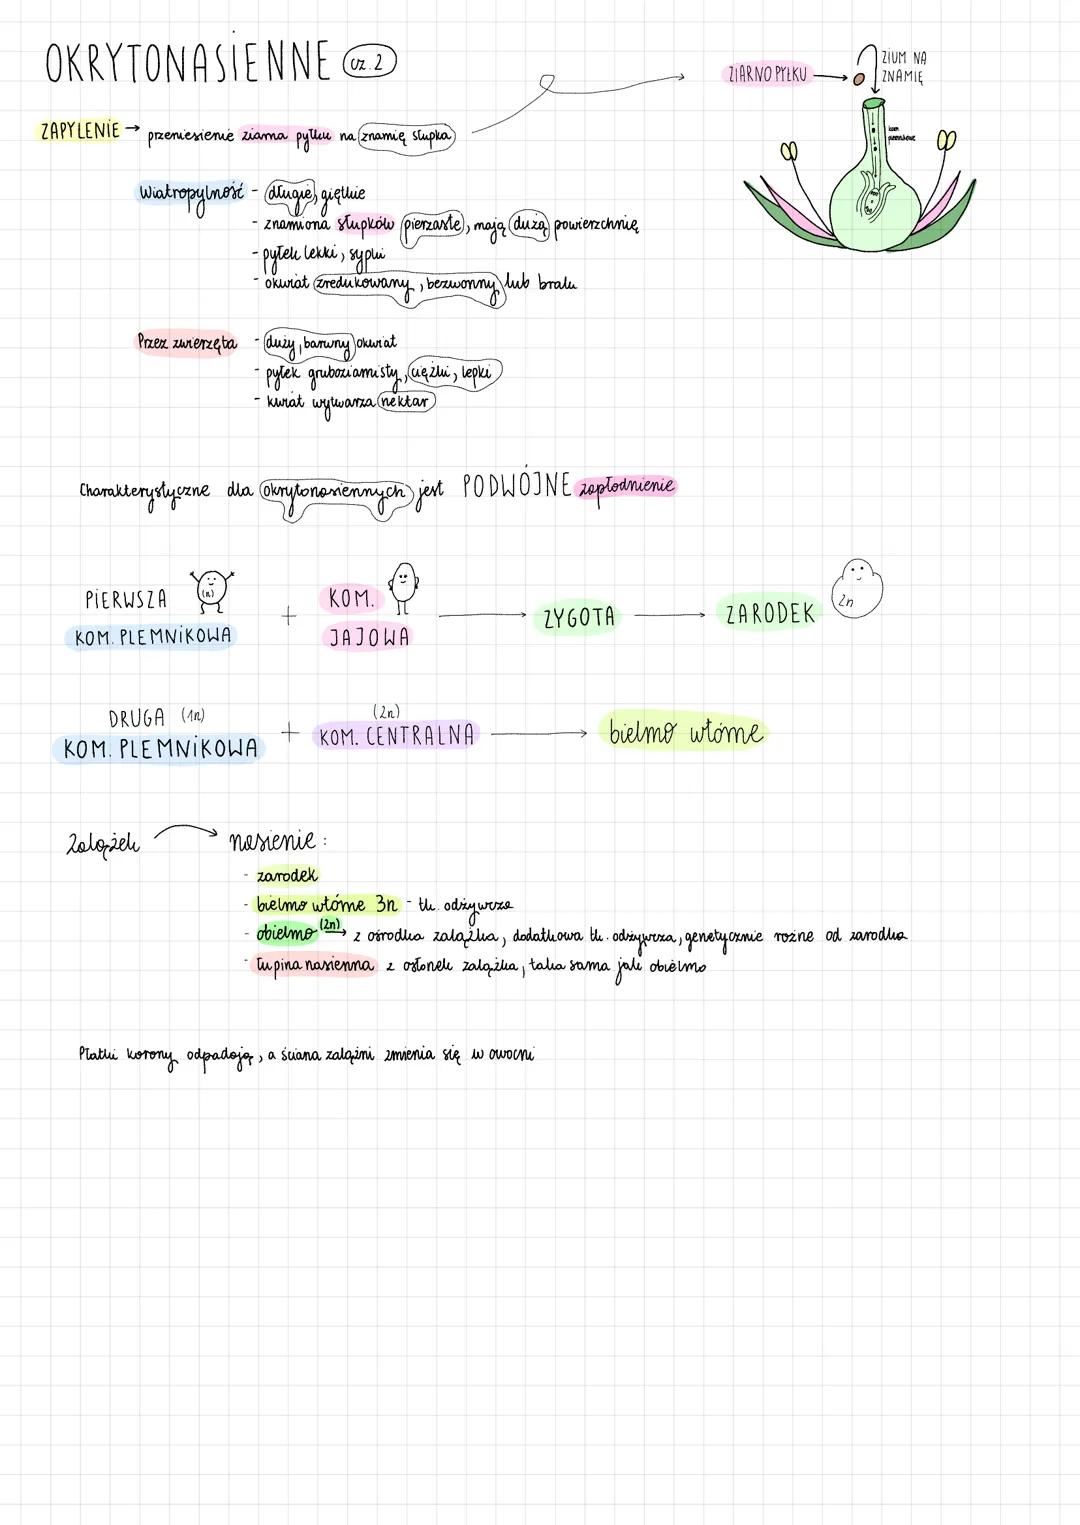 OKRYTONASIENNE cz.2
ZIARNO PYŁKU
ZIUM NA
ZNAMIĘ
ZAPYLENIE → przeniesienie ziarna pyłku na znamię słupka
Wiatropylność - długie, giętkie
- znamiona słupków pierzaste, mają dużą powierzchnię
- pyłek lekki, sypki
- okwiat zredukowany, bezwonny lub braku
Przez zwierzęta - duży, barwny okwiat
- pyłek gruboziarnisty, ciężki, lepki
- kwiat wytwarza nektar
Charakterystyczne dla okrytonasiennych jest PODWÓJNE zapłodnienie
PIERWSZA (n) + KOM. → ZYGOTA → ZARODEK 2n
KOM. PLEMNIKOWA JAJOWA
DRUGA (1n) + (2n) → bielmo wtórne
KOM. PLEMNIKOWA KOM. CENTRALNA
Zalążek → nasienie:
- zarodek
- bielmo wtórne 3n - tk. odżywcza
- obielmo (2n) → z ośrodka zalążka, dodatkowa tk. odżywcza, genetycznie rożne od zarodka
- łupina nasienna z osłonek zalążka, taka sama jak obielmo
Płatki korony odpadają, a ściana zalążni zmienia się w owocni